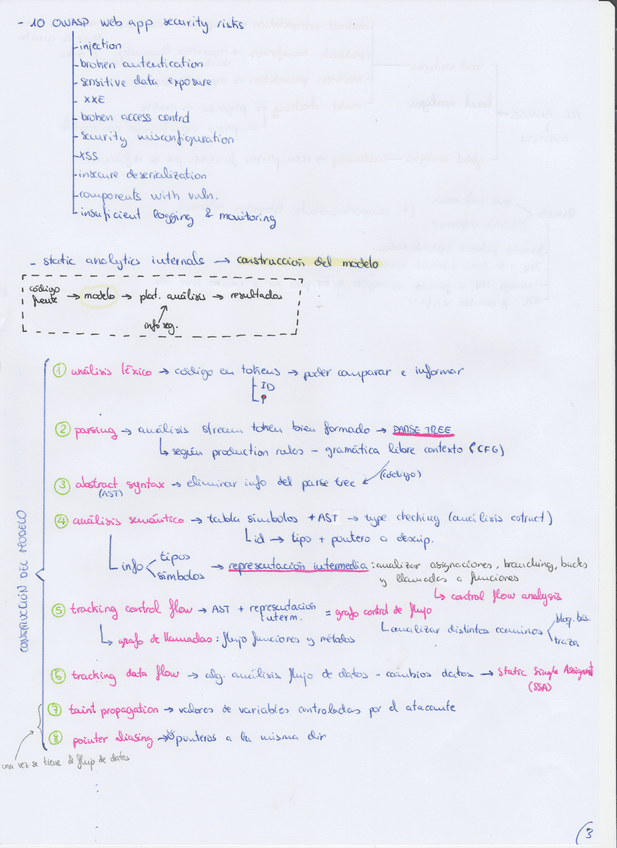 - 10 OWASP web app security risks
- injection
- broken autentication
- sensitive data exposure
- XXE
- broken access control
- security misconfiguration
- XSS
- insecure deserialization
- components with vuln.
- insuficient logging & monitoring
- static analytics internals → construcción del modelo
código fuente → modelo → plat. análisis → resultados
info seg.
① análisis léxico → código en tokens → poder comparar e informar
ID
② parsing → análisis stream token bien formado → PARSE TREE
según production rules - gramática libre contexto (CFG)
③ abstract syntax → eliminar info del parse tree (código)
(AST)
④ análisis semántico → tabla símbolos + AST → type checking (análisis estruct)
id → tipo + puntero a descrip.
info tipos símbolos → representación intermedia: analizar asignaciones, branching, bucles
y llamadas a funciones
↳ control flow analysis
⑤ tracking control flow → AST + representación interm. = grafo control de flujo
↳ grafo de llamadas: flujo funciones y métodos
analizar distintos caminos bloq. bás. traza
⑥ tracking data flow → alg. análisis flujo de datos - cambios datos → Static Single Assignment
(SSA)
⑦ taint propagation → valores de variables controladas por el atacante
⑧ pointer aliasing → punteros a la misma dir
una vez se tiene el flujo de datos
CONSTRUCCIÓN DEL MODELO
3